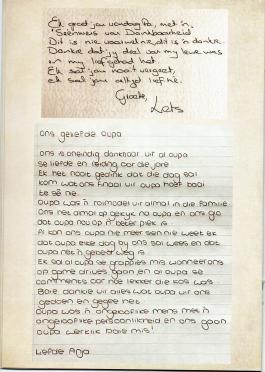 Ek groet jou vandag Pa, met 'n
'Seënwens van Dankbaarheid
Dit is nie vaarwel nie, dit is 'n dankie.
Dankie dat jy deel van my lewe was
en my liefgehad het.
Ek sal jou nooit vergeet,
ek sal jou altyd liefhê.
Groete,
Lets
Ons geliefde Oupa
Ons is oneindig dankbaar vir al oupa
se liefde en leiding oor die jare
Ek het nooit gedink dat die dag sal
kom wat ons finaal vir oupa moet baai
te sê nie.
Oupa was 'n rolmodel vir almal in die familie
Ons het almal op gekyk na oupa en ons glo
dat oupa nou op 'n beter plek is
Al kan ons oupa nie meer sien nie weet ek
dat oupa elke dag by ons sal wees en dat
oupa net 'n gebed weg is
Ek sal al oupa se grappies mis wanneer ons
op game drives gaan en al oupa se
comments oor hoe lekker die kos was
Baie dankie vir alles wat oupa vir ons
gedoen en gegee het
Oupa was 'n ongelooflike mens met 'n
ongelooflike persoonlikheid en ons gaan
oupa werklik baie mis!
Liefde Anja